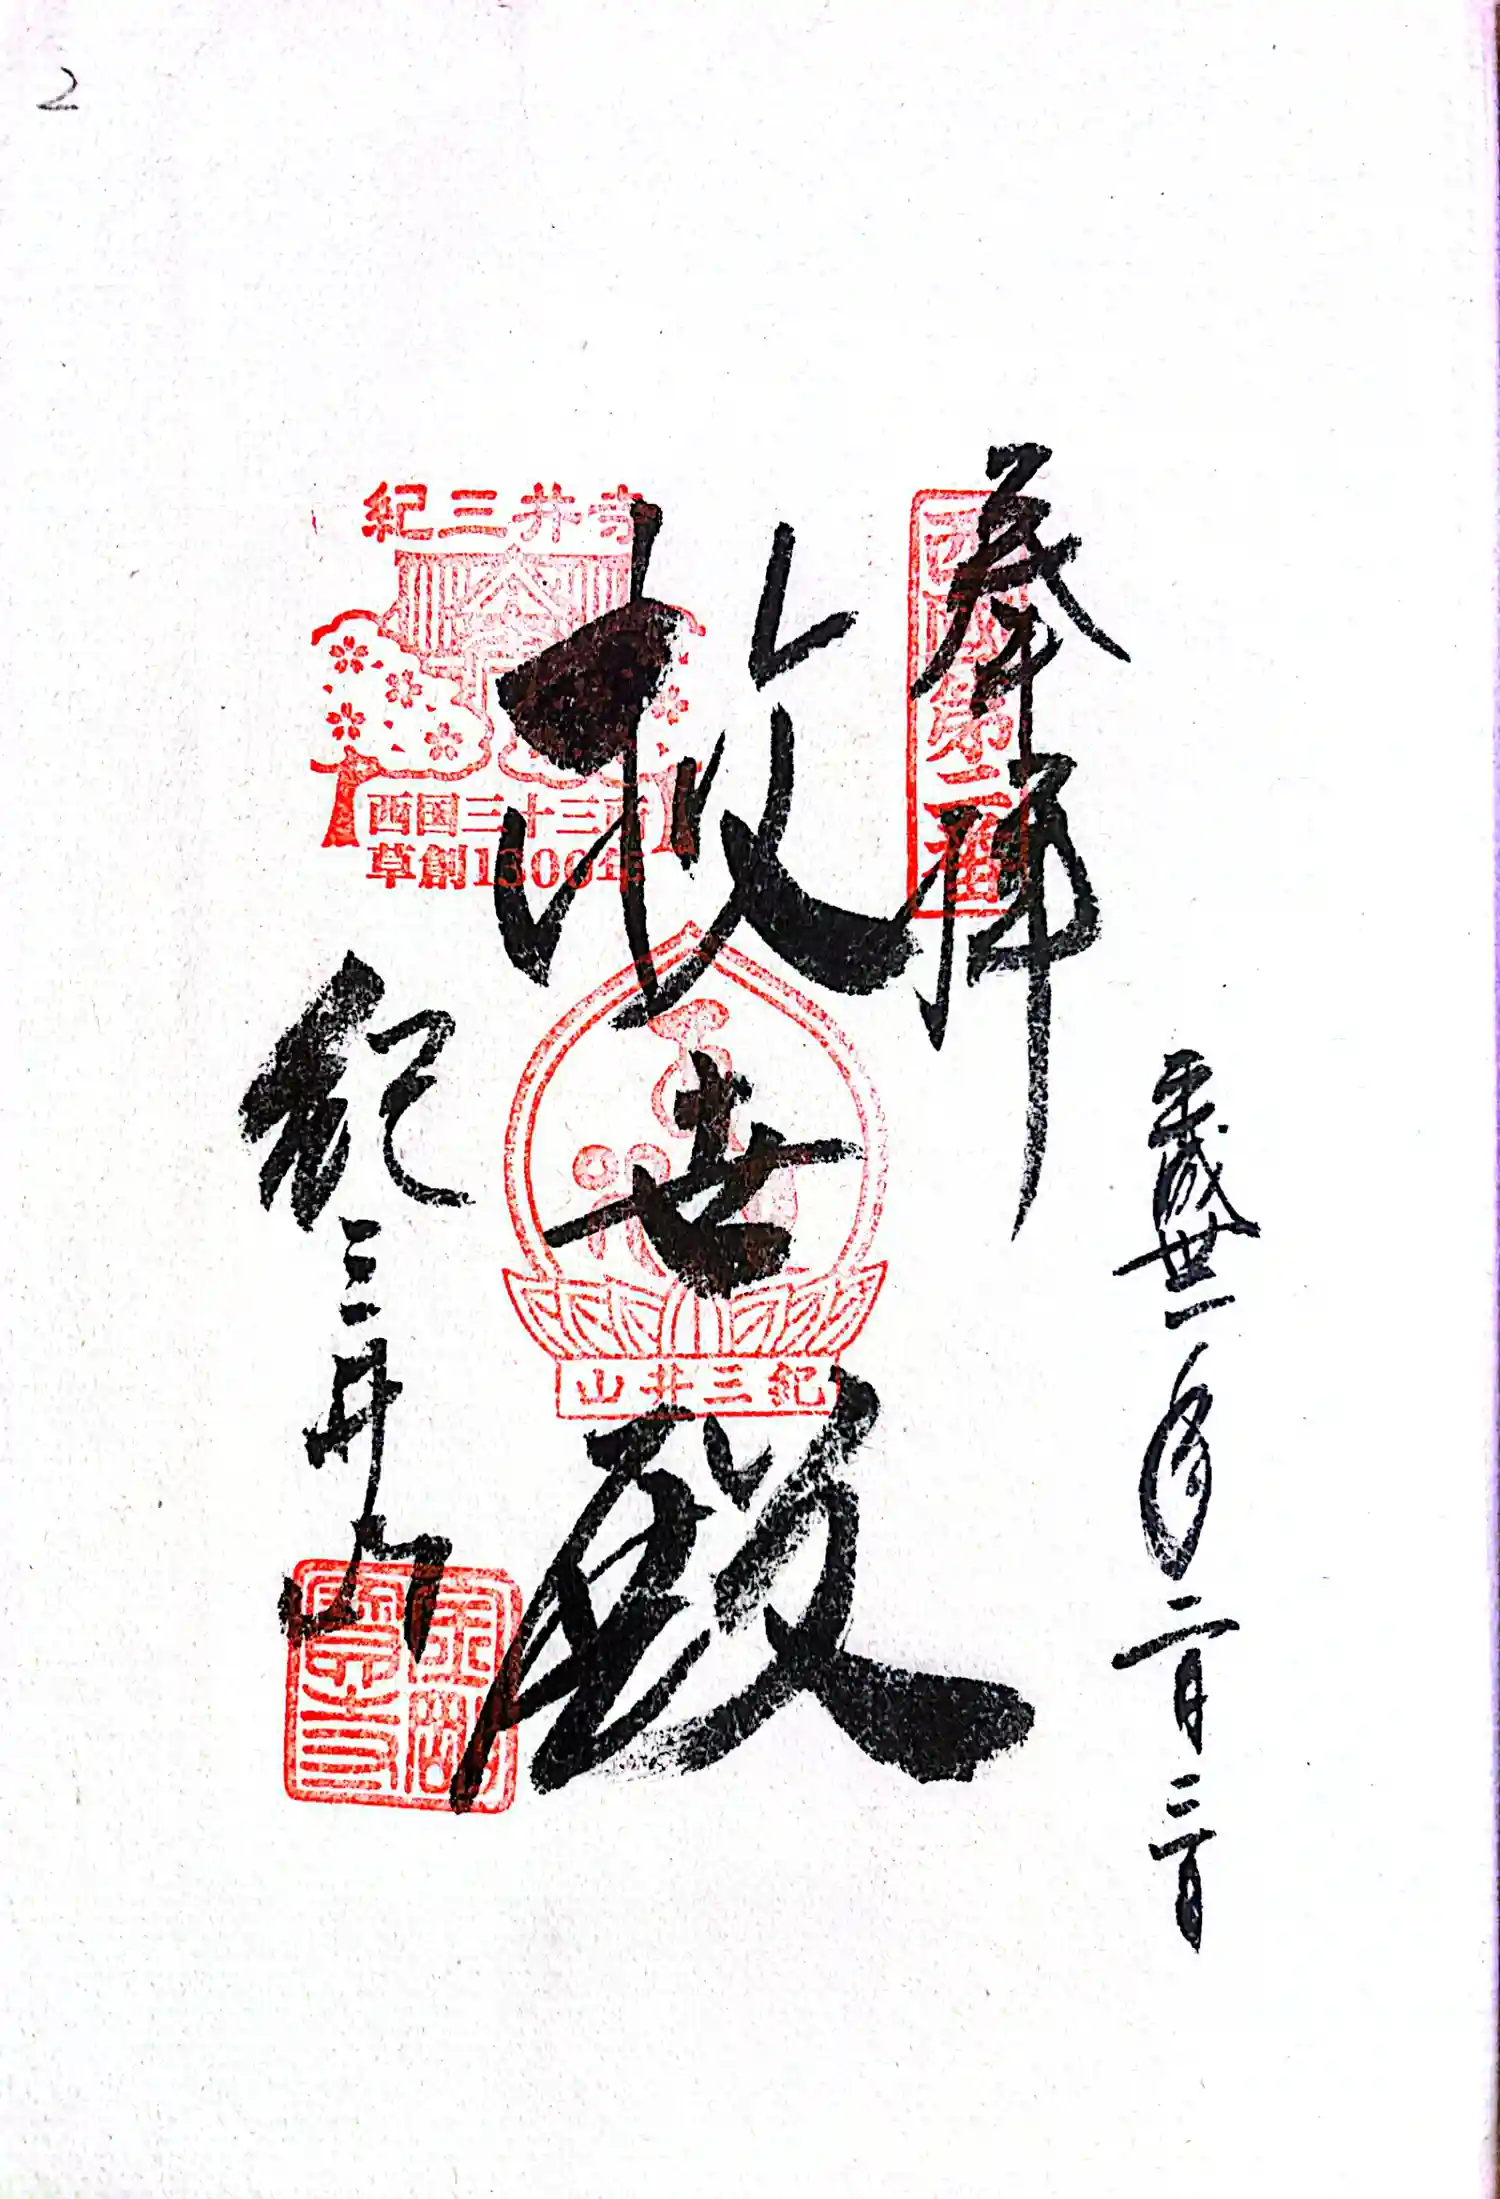 2
平成丗一年二月二日
奉拝
西国第二番
救世殿
紀三井山
紀三井寺
西国三十三所
草創1300年
紀三井山
金剛宝寺